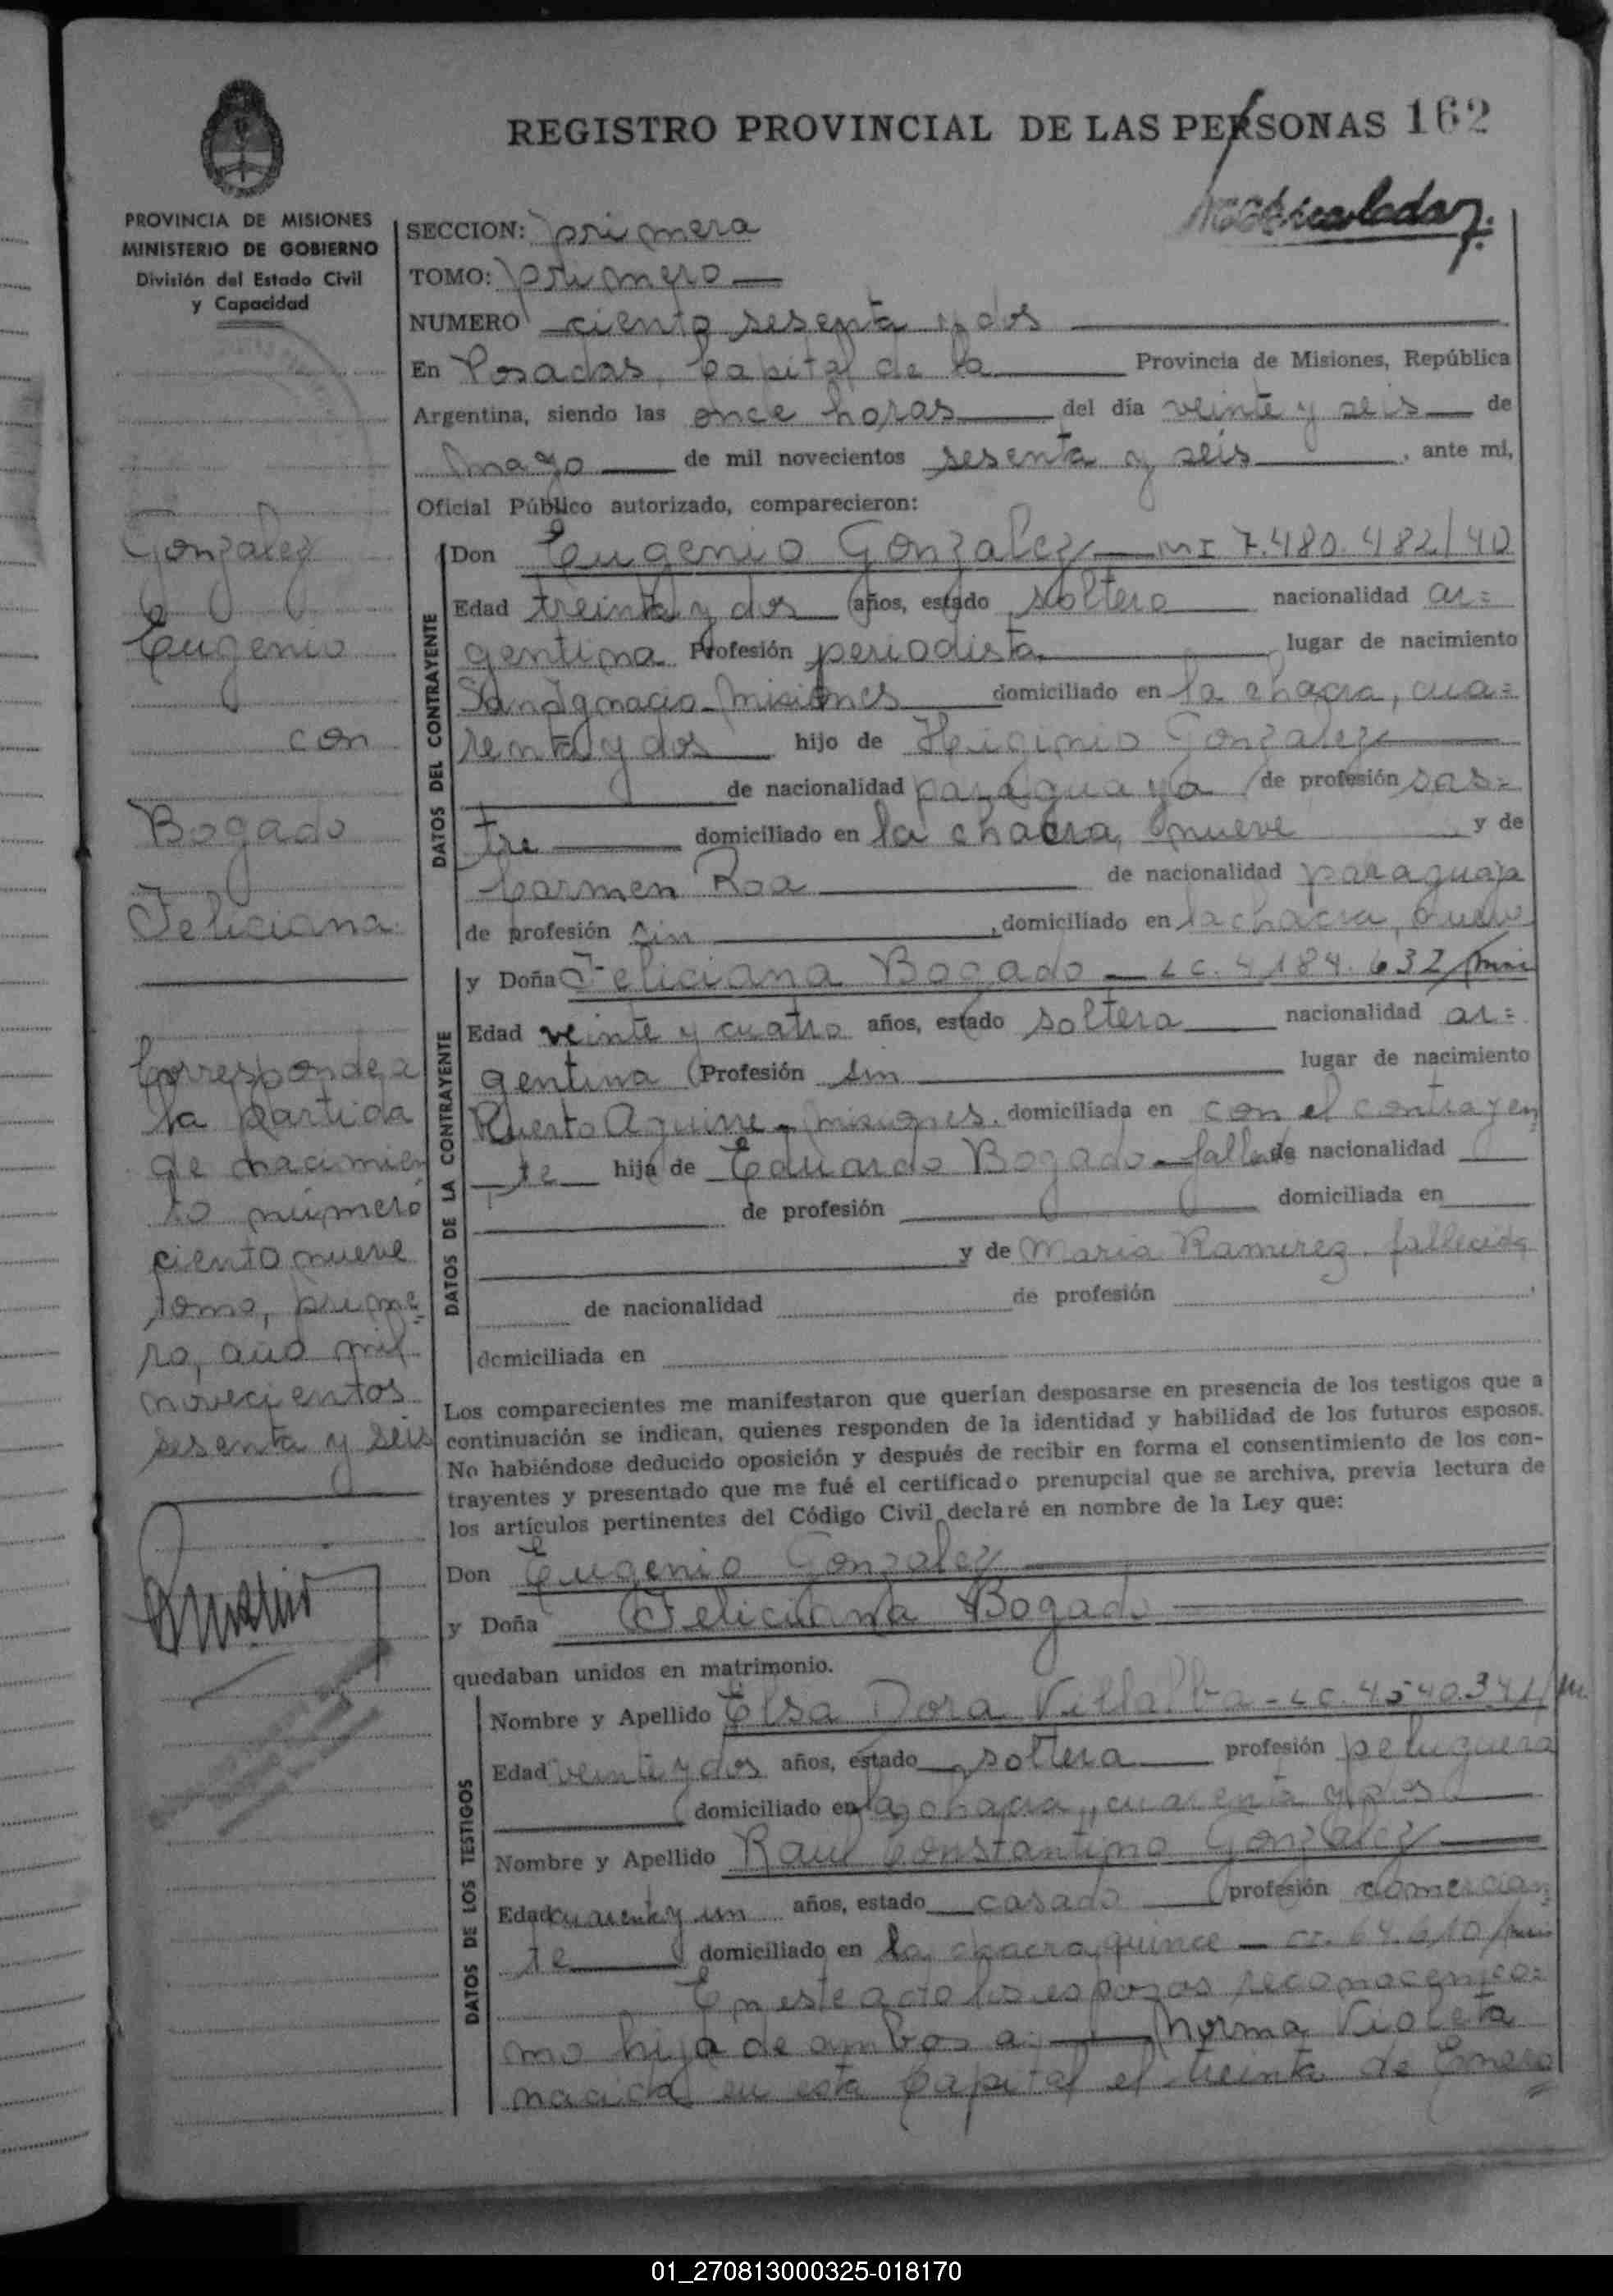 REGISTRO PROVINCIAL DE LAS PERSONAS 162
PROVINCIA DE MISIONES
MINISTERIO DE GOBIERNO
División del Estado Civil
y Capacidad
SECCION: primera
TOMO: primero
NUMERO ciento sesenta y dos
En Posadas, Capital de la Provincia de Misiones, República
Argentina, siendo las once horas del día veinte y seis de
mayo de mil novecientos sesenta y seis, ante mi,
Oficial Público autorizado, comparecieron:
Gonzalez
Eugenio
con
Bogado
Feliciana
Corresponde a
la partida
de nacimien
to número
ciento nueve
tomo, prime=
ro, año mil
novecientos
sesenta y seis
DATOS DEL CONTRAYENTE
Don Eugenio Gonzalez — MI 7.480.482/40
Edad treinta y dos años, estado soltero nacionalidad ar=
gentina Profesión periodista lugar de nacimiento
San Ignacio-Misiones domiciliado en la chacra, cua=
renta y dos hijo de Higinio Gonzalez
de nacionalidad paraguaya de profesión sas=
tre domiciliado en la chacra, nueve y de
Carmen Roa de nacionalidad paraguaya
de profesión sin, domiciliado en la chacra, nueve
DATOS DE LA CONTRAYENTE
y Doña Feliciana Bogado — LC. 4.184.632/
Edad veinte y cuatro años, estado soltera nacionalidad ar=
gentina Profesión sin lugar de nacimiento
Puerto Aguirre-misiones. domiciliada en con el contrayen
te hija de Eduardo Bogado- de nacionalidad
de profesión domiciliada en
y de Maria Ramirez. fallecida
de nacionalidad de profesión
domiciliada en
Los comparecientes me manifestaron que querían desposarse en presencia de los testigos que a
continuación se indican, quienes responden de la identidad y habilidad de los futuros esposos.
No habiéndose deducido oposición y después de recibir en forma el consentimiento de los con-
trayentes y presentado que me fué el certificado prenupcial que se archiva, previa lectura de
los artículos pertinentes del Código Civil declaré en nombre de la Ley que:
Don Eugenio Gonzalez
y Doña Feliciana Bogado
quedaban unidos en matrimonio.
DATOS DE LOS TESTIGOS
Nombre y Apellido Elsa Dora Villalba - LC. 4540.341/
Edad veinte y dos años, estado soltera profesión peluquera
domiciliado en la chacra, cuarenta y dos
Nombre y Apellido Raul Constantino Gonzalez
Edad cuarenta y un años, estado casado profesión comercian=
te domiciliado en la chacra, quince — CI. 64.610/
En este acto los esposos reconocen co=
mo hija de ambos a: — Norma Violeta
nacida en esta Capital el treinta de Enero
01_270813000325-018170